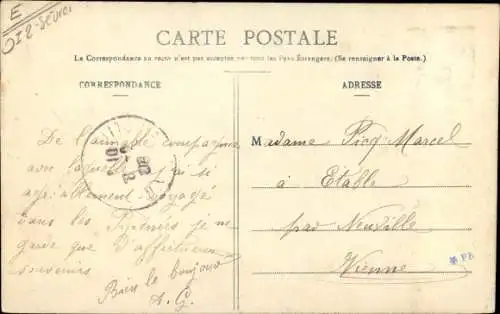 E
CARTE POSTALE
La Correspondance au recto n'est pas acceptée par tous les Pays Étrangers. (Se renseigner à la Poste.)
CORRESPONDANCE
ADRESSE
De l'aimable compagnie
avec laquelle j'ai si
agréablement voyagé
dans les Pyrénées je ne
garde que d'affectueux
souvenirs
Bien le bonjour
A. G.
Madame Picq Marcel
à Etable
par Neuville
Vienne